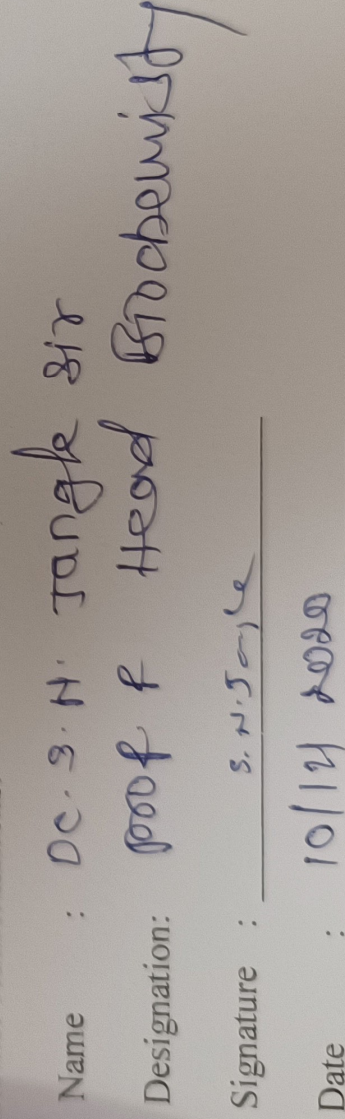 Name : Dr. S. N. Jangle sir
Designation: Prof & Head Biochemistry
Signature : S. N. Jangle
Date : 10/12/2020